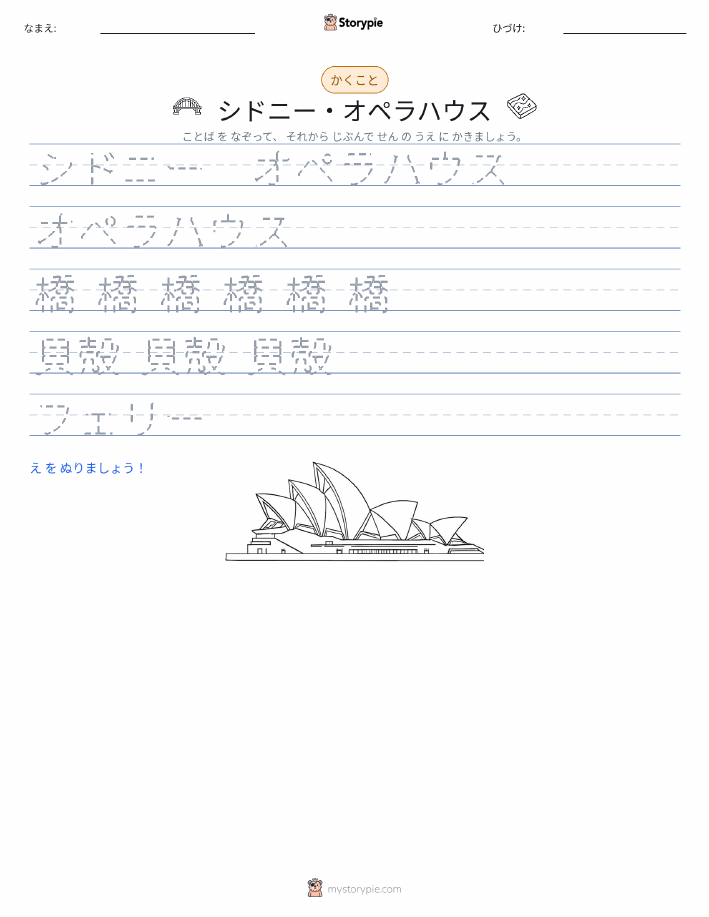 なまえ:
Storypie
ひづけ:
かくこと
シドニー・オペラハウス
ことば を なぞって、 それから じぶんで せん の うえ に かきましょう。
シドニー オペラハウス
オペラハウス
橋 橋 橋 橋 橋 橋
貝殻 貝殻 貝殻
フェリー
え を ぬりましょう！
mystorypie.com